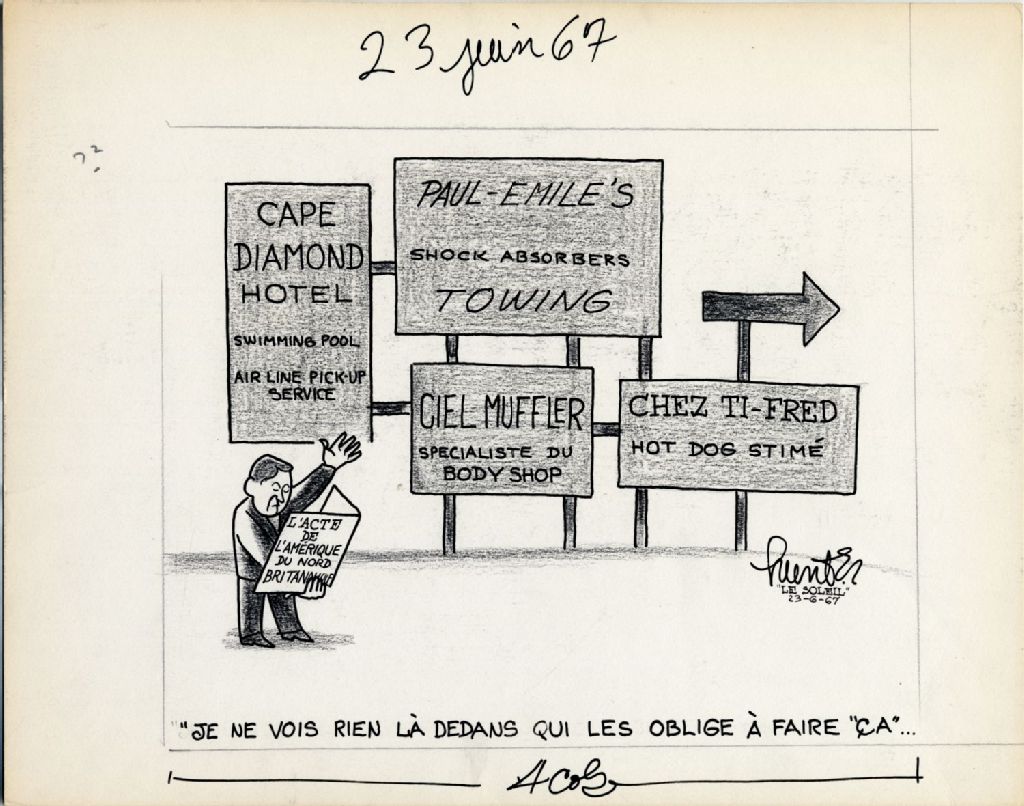 23 juin 67
?
CAPE
DIAMOND
HOTEL
SWIMMING POOL
AIR LINE PICK-UP
SERVICE
PAUL-EMILE'S
SHOCK ABSORBERS
TOWING
CIEL MUFFLER
SPECIALISTE DU
BODY SHOP
CHEZ TI-FRED
HOT DOG STIMÉ
L'ACTE
DE
L'AMÉRIQUE
DU NORD
BRITANNIQUE
"LE SOLEIL"
23-6-67
"JE NE VOIS RIEN LÀ DEDANS QUI LES OBLIGE À FAIRE "ÇA"...
4 cols